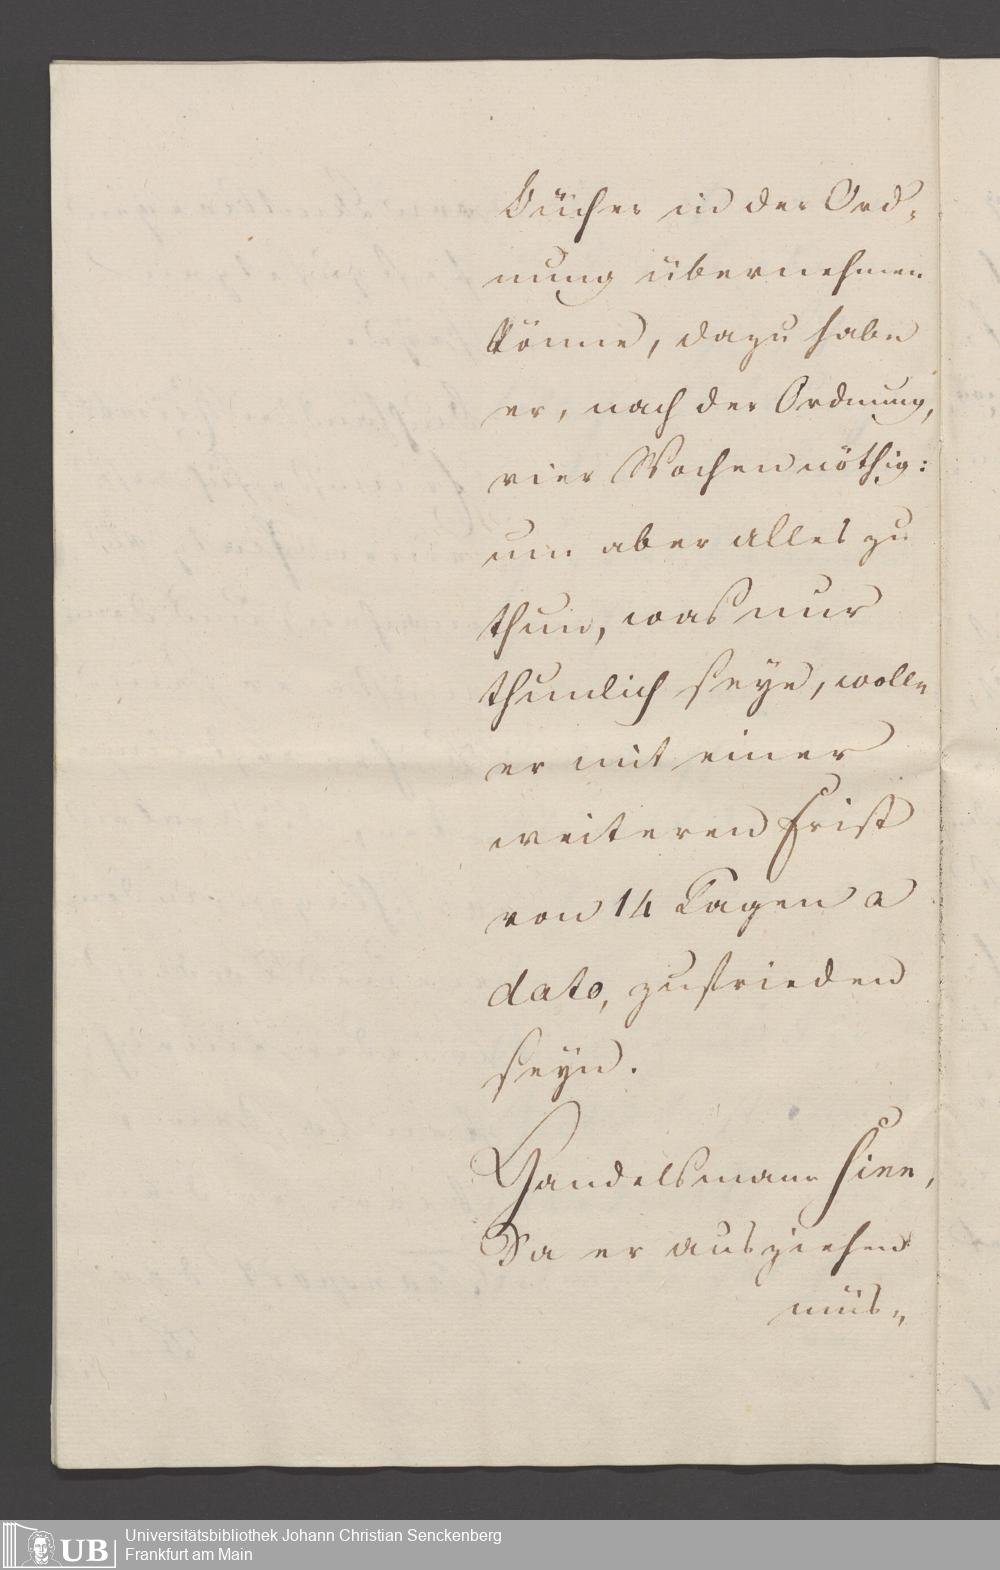 Bücher in der Ord-
nung übernehmen
könne, dazu habe
er, nach der Ordnung,
vier Wochen nöthig:
um aber alles zu
thun, was nur
thunlich seye, wolle
er mit einer
weiteren Frist
von 14 Tagen a
dato, zufrieden
seyn.
Handelsmann
Da er ausziehen
müs-
Universitätsbibliothek Johann Christian Senckenberg
Frankfurt am Main
UB